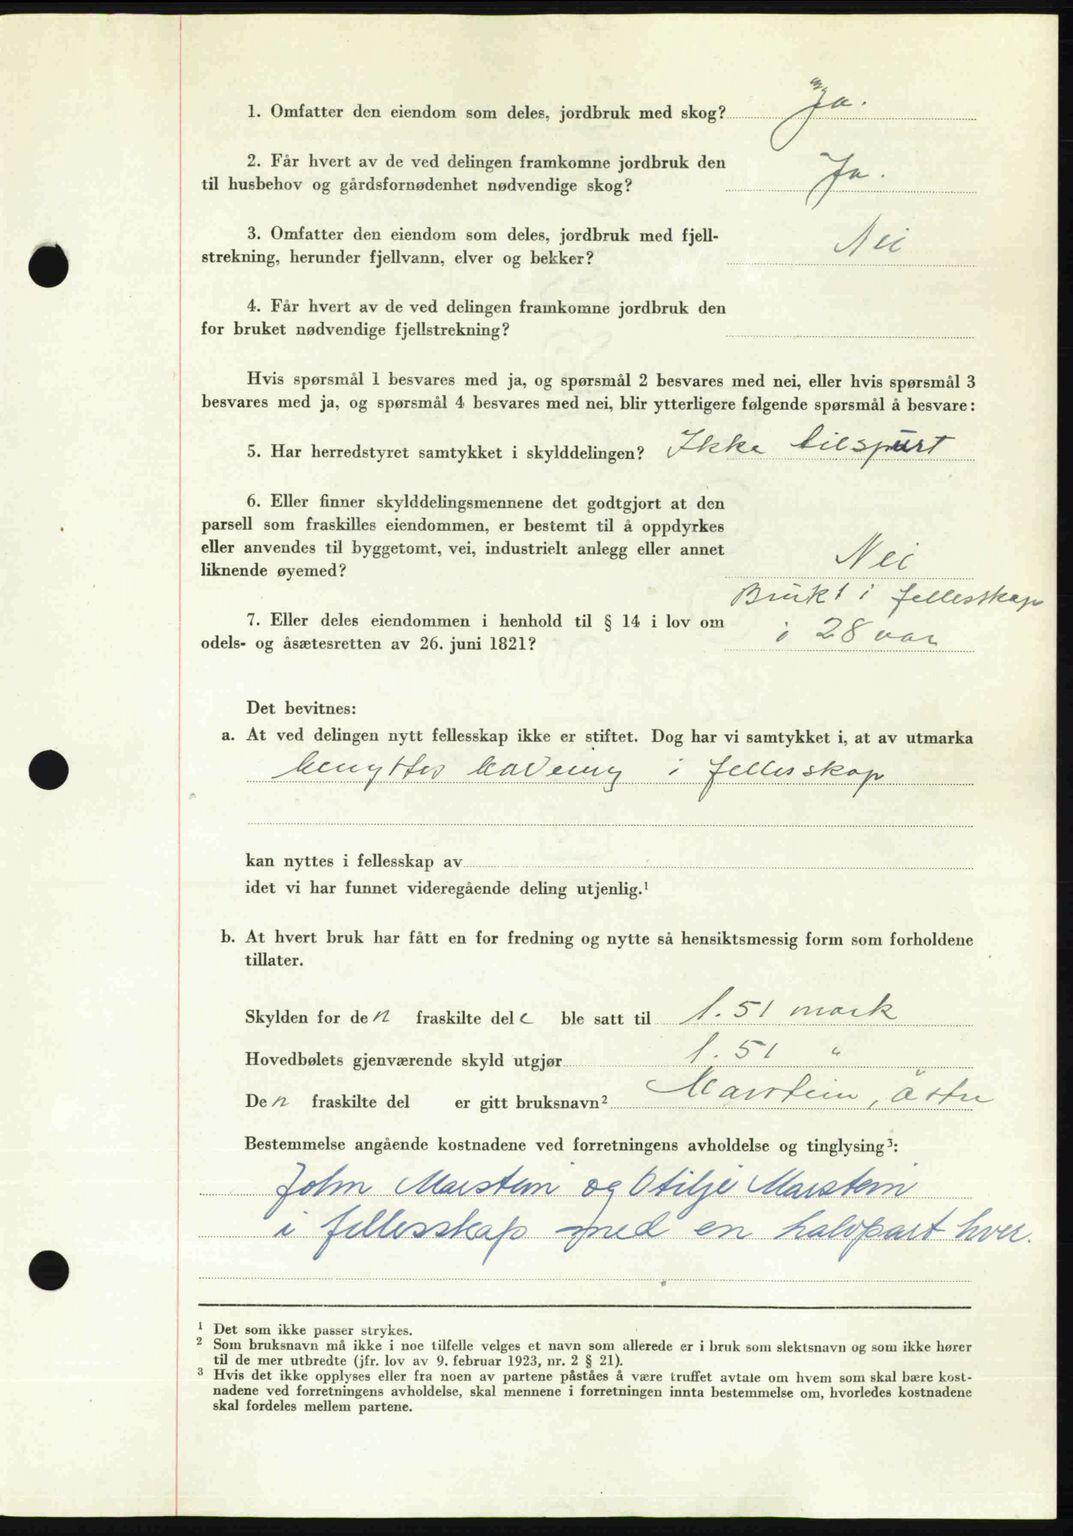 1. Omfatter den eiendom som deles, jordbruk med skog? Ja.
2. Får hvert av de ved delingen framkomne jordbruk den
til husbehov og gårdsfornødenhet nødvendige skog? Ja.
3. Omfatter den eiendom som deles, jordbruk med fjell-
strekning, herunder fjellvann, elver og bekker? Nei
4. Får hvert av de ved delingen framkomne jordbruk den
for bruket nødvendige fjellstrekning?
Hvis spørsmål 1 besvares med ja, og spørsmål 2 besvares med nei, eller hvis spørsmål 3
besvares med ja, og spørsmål 4 besvares med nei, blir ytterligere følgende spørsmål å besvare:
5. Har herredstyret samtykket i skylddelingen? Ikke tilspurt
6. Eller finner skylddelingsmennene det godtgjort at den
parsell som fraskilles eiendommen, er bestemt til å oppdyrkes
eller anvendes til byggetomt, vei, industrielt anlegg eller annet
liknende øyemed? Nei
Brukt i fellesskap
7. Eller deles eiendommen i henhold til § 14 i lov om
odels- og åsætesretten av 26. juni 1821? i 28 aar
Det bevitnes:
a. At ved delingen nytt fellesskap ikke er stiftet. Dog har vi samtykket i, at av utmarka
i fellesskap
kan nyttes i fellesskap av
idet vi har funnet videregående deling utjenlig.¹
b. At hvert bruk har fått en for fredning og nytte så hensiktsmessig form som forholdene
tillater.
Skylden for den fraskilte del ble satt til 1.51 mark
Hovedbølets gjenværende skyld utgjør 1.51 "
Den fraskilte del er gitt bruksnavn² Marstein, östre
Bestemmelse angående kostnadene ved forretningens avholdelse og tinglysing³:
John Marstein og Otilje Marstein
i fellesskap med en halvpart hver.
¹ Det som ikke passer strykes.
² Som bruksnavn må ikke i noe tilfelle velges et navn som allerede er i bruk som slektsnavn og som ikke hører
til de mer utbredte (jfr. lov av 9. februar 1923, nr. 2 § 21).
³ Hvis det ikke opplyses eller fra noen av partene påståes å være truffet avtale om hvem som skal bære kost-
nadene ved forretningens avholdelse, skal mennene i forretningen innta bestemmelse om, hvorledes kostnadene
skal fordeles mellem partene.